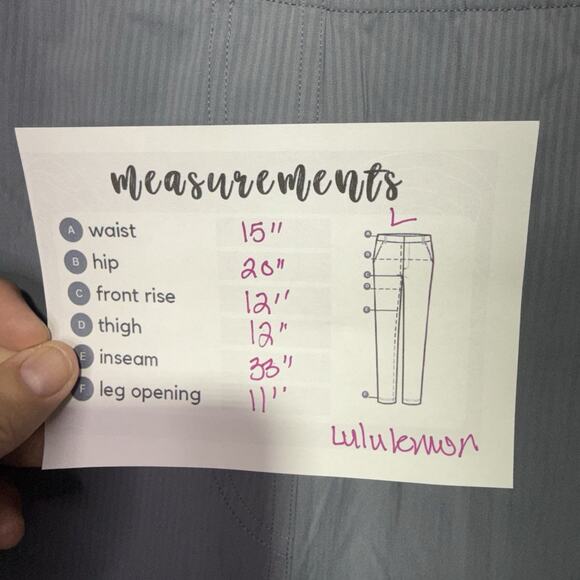 measurements
L
A waist 15"
B hip 20"
C front rise 12"
D thigh 12"
E inseam 33"
F leg opening 11"
lululemon